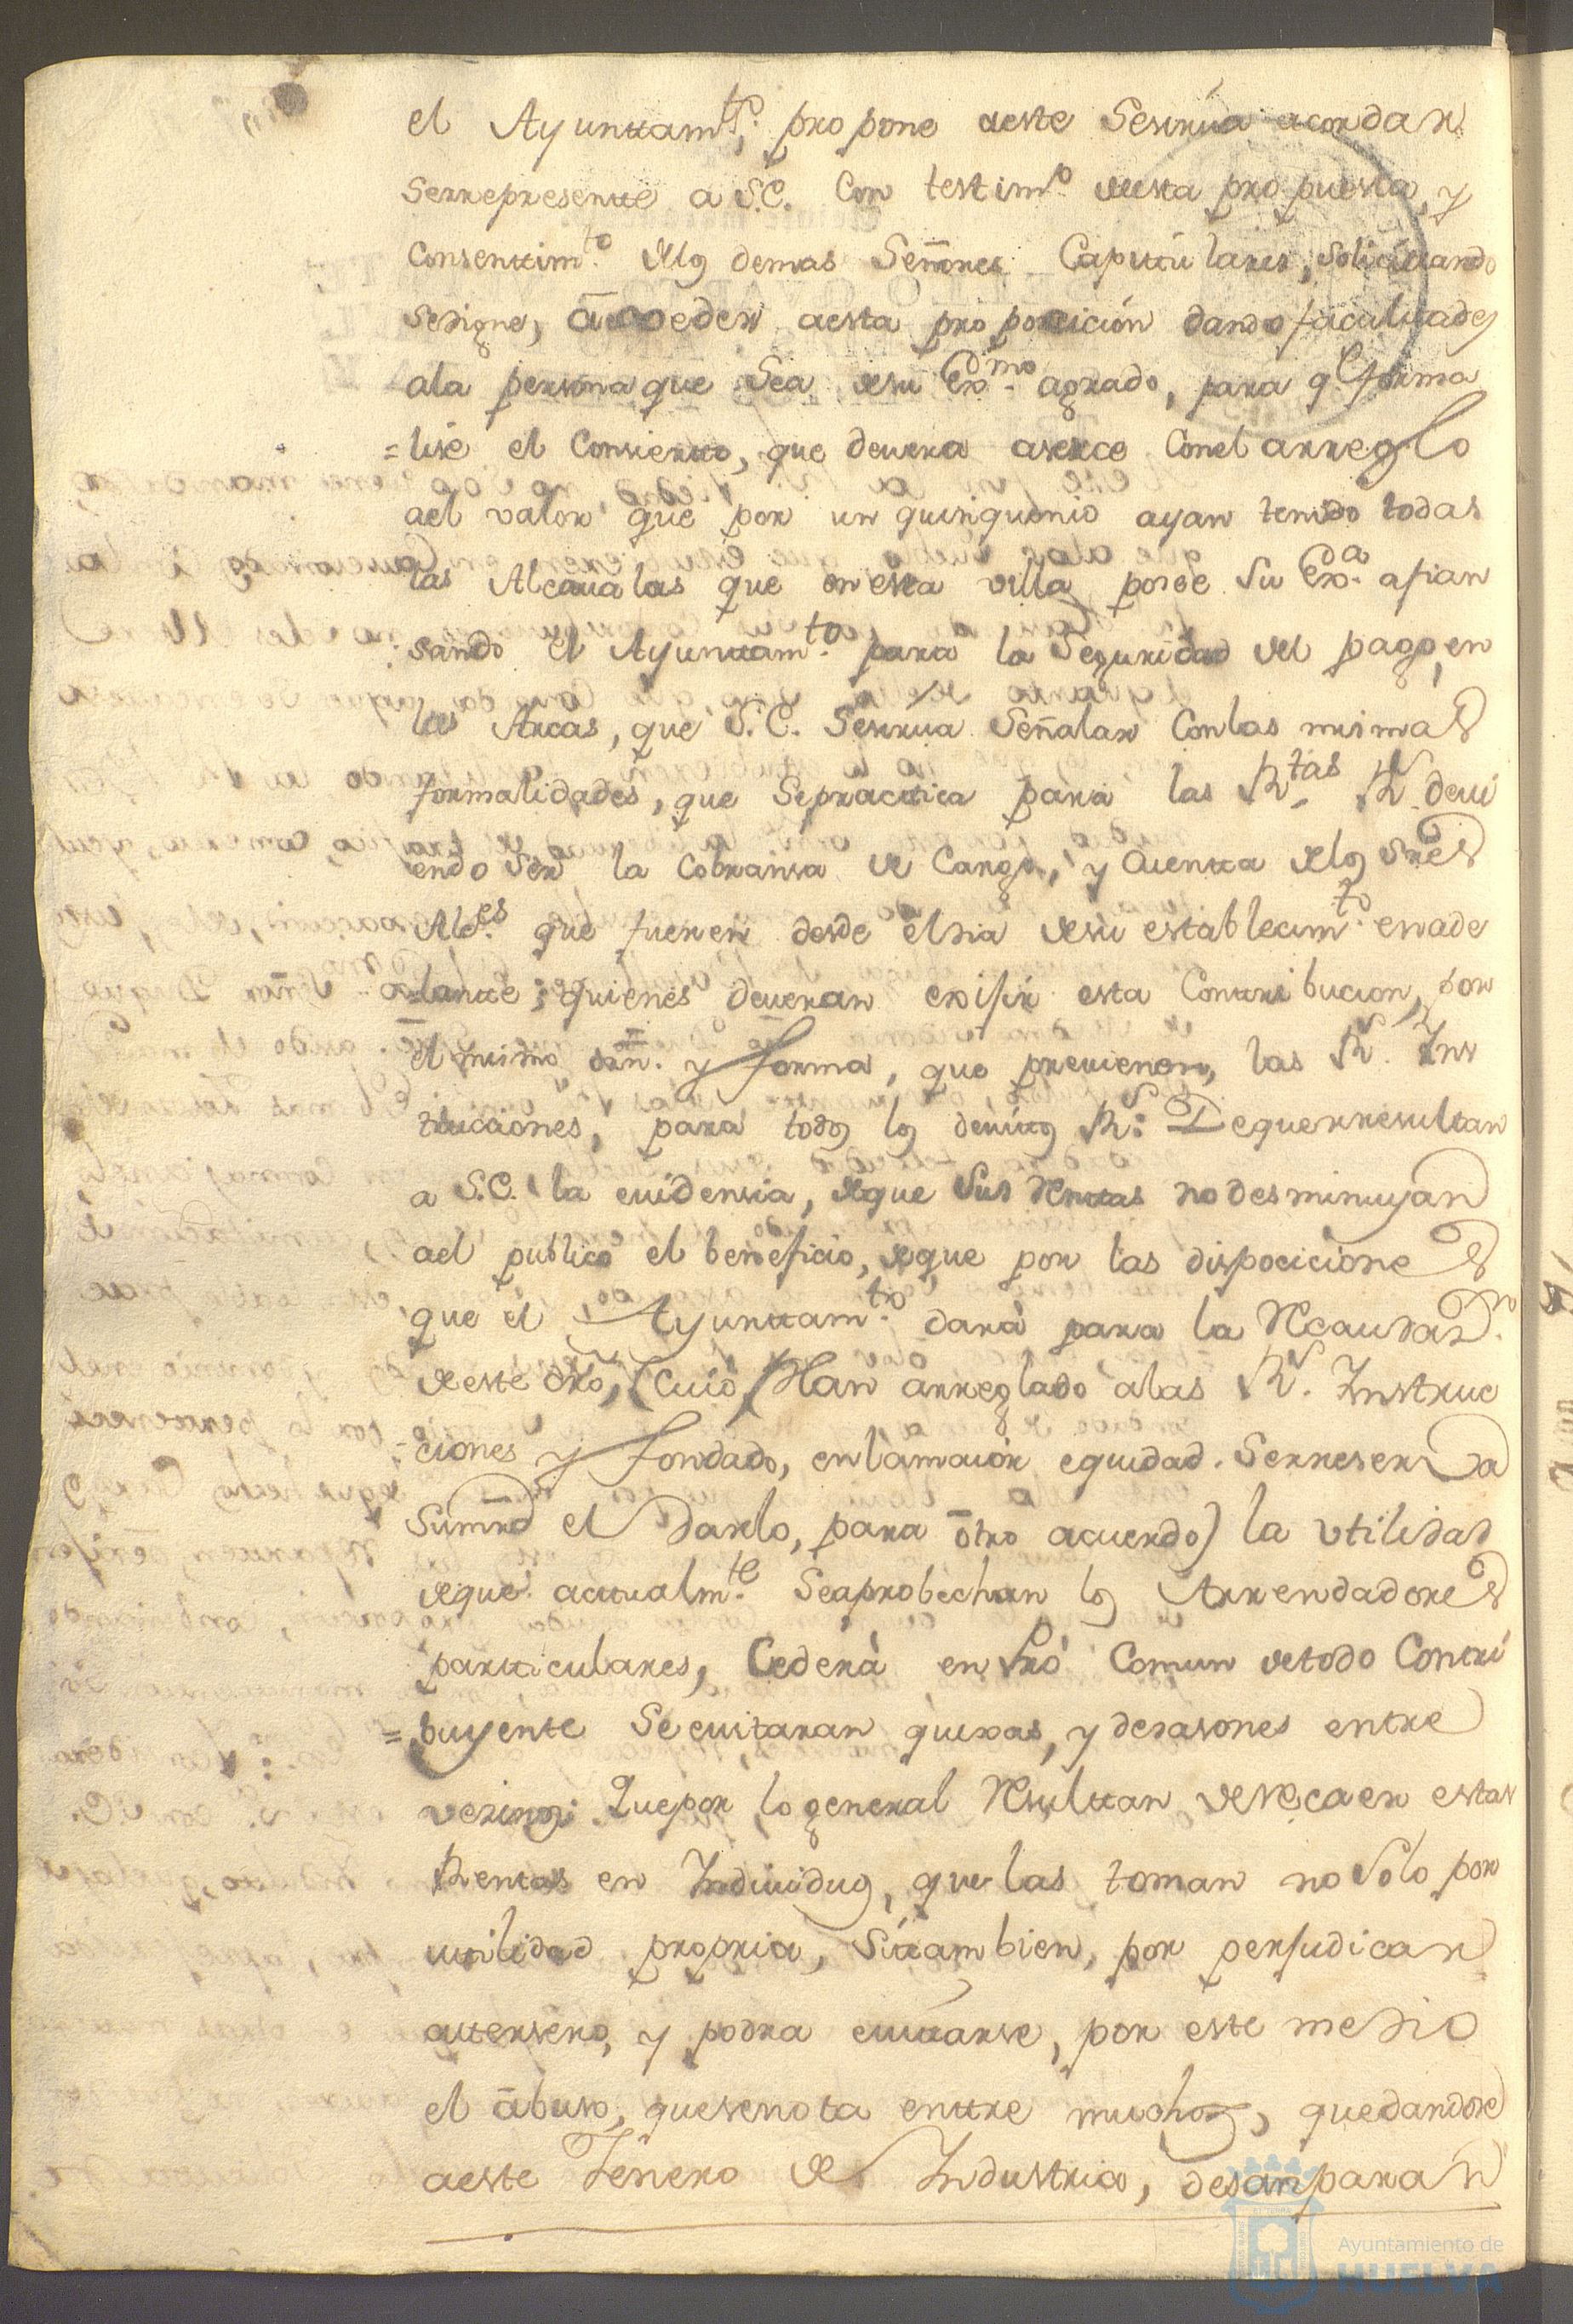 el Ayunttamto; propone a este se sirua acordar
se rrepresentte a S.E. Con testimo de esta propuesta, y
consenttimto de los demas Señores Capittulares, solicittando
se digne, acceder a esta proposición dando facultades
a la persona que sea de su Exmo agrado, para qe forma
=lise el Convierto, que deuera aserce Con el arreglo
a el valor que por un quinquenio ayan tenido todas
las Alcaualas que en esta villa posee Su Exa afian
sando el Ayunttamto para la Seguridad del pago, en
las Arcas, que S.E. se sirua Señalar Con las mismas
formalidades, que se practtica para las Rtas Rs deui
endo Ser la Cobransa de Cargo, y Cuentta de los Sres
Alces que fueren desde el dia de su establecimto en ade
=lantte; quienes deueran exijir esta Conttribucion, por
el mismo orn. y forma, que preuienen, las Rs Ins
trucciones, para todos los deuitos Rs: De que rresultan
a S.E. la euidensia, de que sus Renttas no desminuyan
a el publico el beneficio, de que por las dispociciones
que el Ayunttamto dará para la Recaudazn
de este dro, (Cuio Plan arreglado a las Rs. Instruc
=ciones y fondado, en la maior equidad. Se rreserva
su mrd el darlo, para otro acuerdo) la vtilidad
de que actualmte Se aprobechan los Arrendadores
partticulares, Cederá en Pró Comun de todo Contri
=buyente Se euitaran quexas, y desasones entre
vezinos: Que por lo general Resulttan de Recaer estas
Rentas en Indiuiduos, que las toman no Solo por
uttilidad propria, Si tambien, por perjudicar
a tterseros, y podra euittarse, por este medio
el abuso, que se nota enttre muchos, quedandose
a este Jénero de Industria, desanparan
Ayuntamiento de
HUELVA